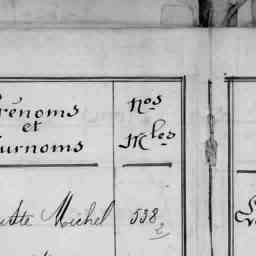 rénoms
et
urnoms
Nos
Mles
ste Michel 538
2